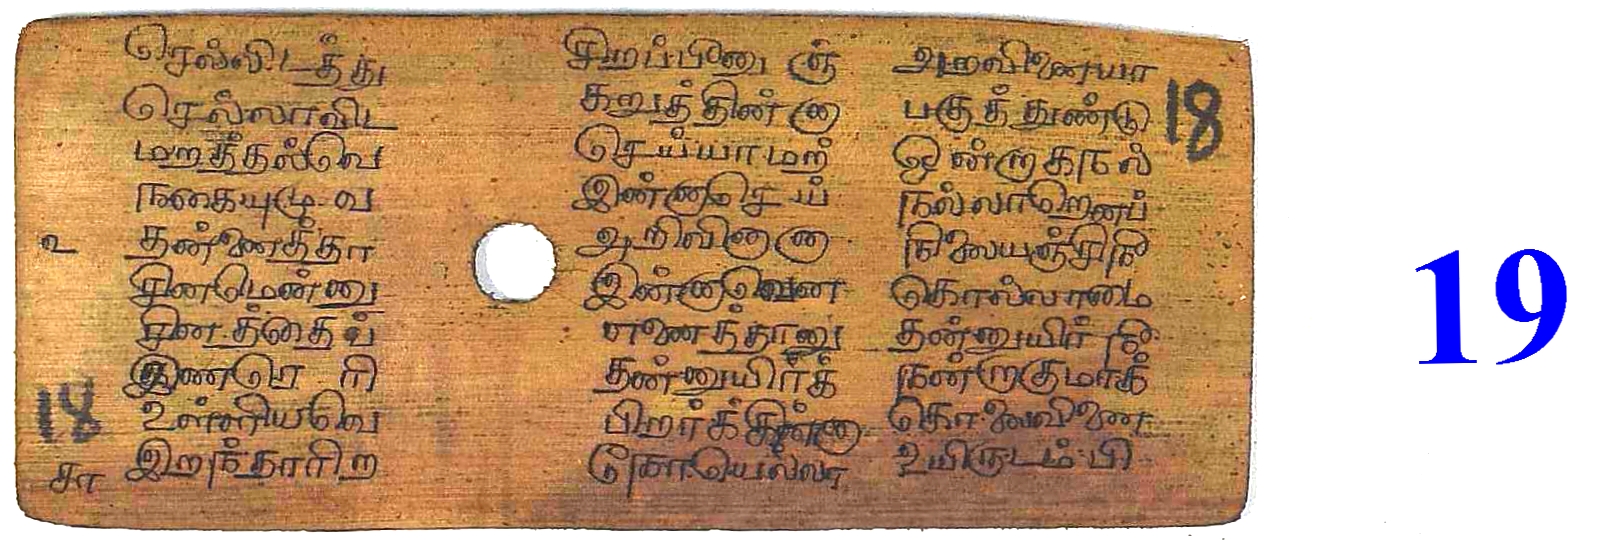 செல்லிடத்து
செல்லாவிட
மறத்தல்வெ
நகையுமுவ
தன்னைத்தா
சினமென்னு
சினத்தைப்
இணரெரி
உள்ளியவெ
இறந்தாரிற
உ
18
சிறப்பினுஞ்
கறுத்தின்னா
செய்யாமற்
இன்னாசெய்
அறிவினான
இன்னாவென
எனைத்தானு
தன்னுயிர்க்
பிறர்க்கின்னா
நோயெல்லா
அறவினையா
பகுத்துண்டு
ஒன்றாகநல்
நல்லாறெனப்
நிலையஞ்சிநீ
கொல்லாமை
தன்னுயிர்நீ
நன்றாகுமாக்
கொலைவினை
உயிருடம்பி
18
19